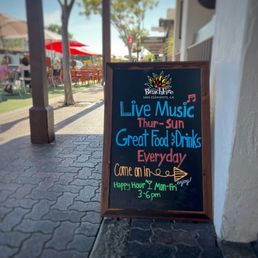 Beachfire
SAN CLEMENTE, CA
Live Music
Thur-Sun
Great Food & Drinks
Everyday
Come on in
enjoy!
Happy Hour Mon-Fri
3-6pm